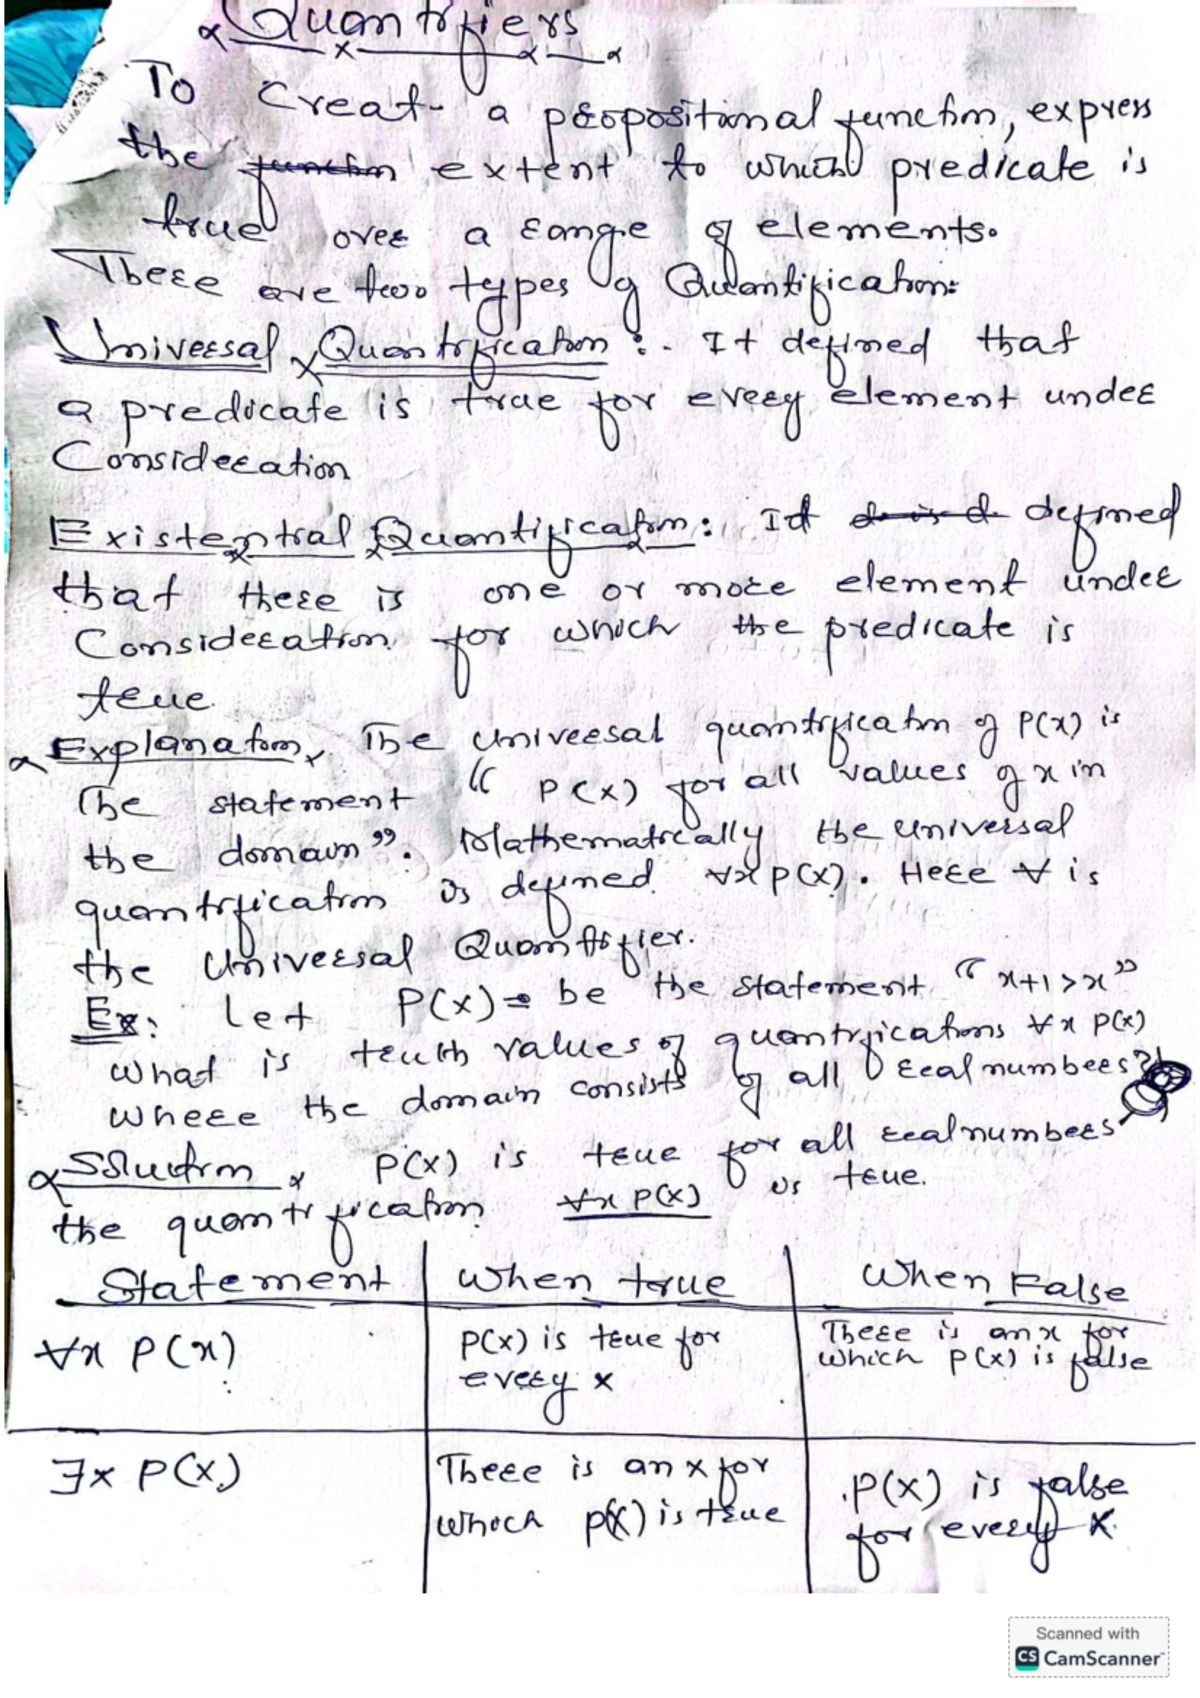 Quantifiers
To Creat a propositional function, express
the function extent to which predicate is
true over a range of elements.
There are two types of Quantification:
Universal Quantification :- It defined that
a predicate is true for every element under
Consideration
Existential Quantification: It defined
that there is one or more element under
Consideration for which the predicate is
true
Explanation The Universal quantification of P(x) is
The statement "P(x) for all values of x in
the domain". Mathematically the universal
quantification is defined ∀x P(x). Here ∀ is
the Universal Quantifier.
Ex: Let P(x) be the statement "x+1>x"
What is truth values of quantifications ∀x P(x)
where the domain consists of all real numbers?
Solution P(x) is true for all real numbers
the quantification ∀x P(x) is true.
Statement When true When False
∀x P(x) P(x) is true for every x There is an x for which P(x) is false
∃x P(x) There is an x for which P(x) is true P(x) is false for every x
Scanned with
CS CamScanner